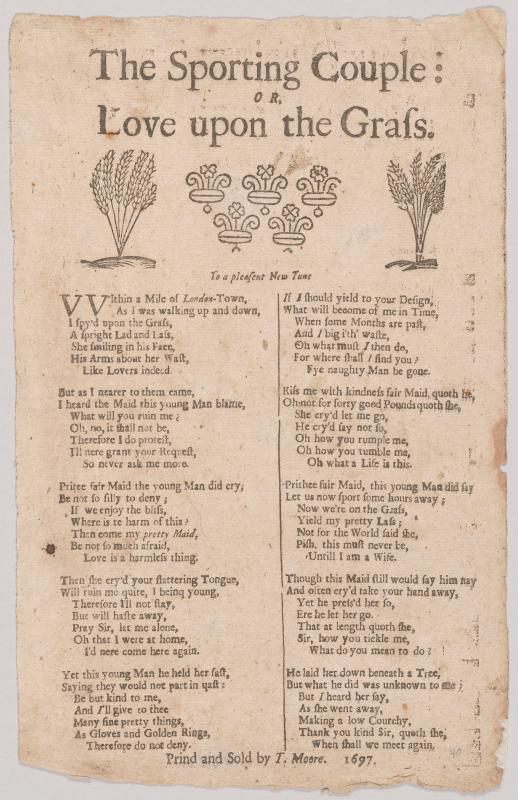 The Sporting Couple:
OR,
Love upon the Graſs.
To a pleaſent New Tune
VVIthin a Mile of London-Town,
As I was walking up and down,
I ſpy'd upon the Graſs,
A ſpright Lad and Laſs,
She ſmiling in his Face,
His Arms about her Waſt,
Like Lovers indeed.
But as I nearer to them came,
I heard the Maid this young Man blame,
What will you ruin me?
Oh, no, it ſhall not be,
Therefore I do proteſt,
I'll nere grant your Requeſt,
So never ask me more.
Pritee fair Maid the young Man did cry,
Be not ſo ſilly to deny;
If we enjoy the bliſs,
Where is te harm of this?
Than come my pretty Maid,
Be not ſo much afraid,
Love is a harmleſs thing.
Then ſhe cry'd your flattering Tongue,
Will ruin me quite, I being young,
Therefore I'll not ſtay,
But will haſte away,
Pray Sir, let me alone,
Oh that I were at home,
I'd nere come here again.
Yet this young Man he held her faſt,
Saying they would not part in qaſt:
Be but kind to me,
And I'll give to thee
Many fine pretty things,
As Gloves and Golden Rings,
Therefore do not deny.
If I ſhould yield to your Deſign,
What will become of me in Time,
When ſome Months are paſt,
And I big i'th' waſte,
Oh what muſt I then do,
For where ſhall I find you?
Fye naughty Man be gone.
Kiſs me with kindneſs fair Maid, quoth he,
Oh not for forty good Pounds quoth ſhe,
She cry'd let me go,
He cry'd ſay not ſo,
Oh how you rumple me,
Oh how you tumble me,
Oh what a Life is this.
Prithee fair Maid, this young Man did ſay
Let us now ſport ſome hours away;
Now we're on the Graſs,
Yield my pretty Laſs;
Not for the World ſaid ſhe,
Piſh, this muſt never be,
Untill I am a Wife.
Though this Maid ſtill would ſay him nay
And often cry'd take your hand away,
Yet he preſs'd her ſo,
Ere he let her go.
That at length quoth ſhe,
Sir, how you tickle me,
What do you mean to do?
He laid her down beneath a Tree,
But what he did was unknown to me;
But I heard her ſay,
As ſhe went away,
Making a low Courchy,
Thank you kind Sir, quoth ſhe,
When ſhall we meet again.
Prind and Sold by T. Moore. 1697.
40